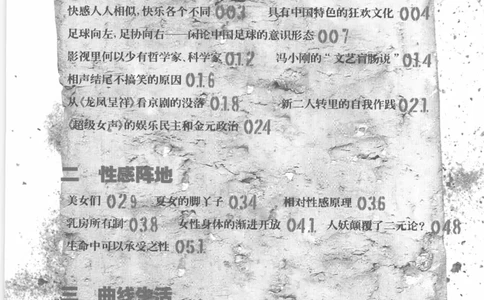 快感人人相似,快乐各个不同 003 具有中国特色的狂欢文化 004
足球向左,足协向右——闲论中国足球的意识形态 007
影视里何以少有哲学家、科学家 012 冯小刚的“文艺盲肠说” 014
相声结尾不搞笑的原因 016
从《龙凤呈祥》看京剧的没落 018 新二人转里的自我作践 021
《超级女声》的娱乐民主和金元政治 024
二 性感阵地
美女们 029 夏女的脚丫子 034 相对性感原理 036
乳房所有制 038 女性身体的渐进开放 041 人妖颠覆了二元论? 048
生命中可以承受之性 051
三 曲线生活